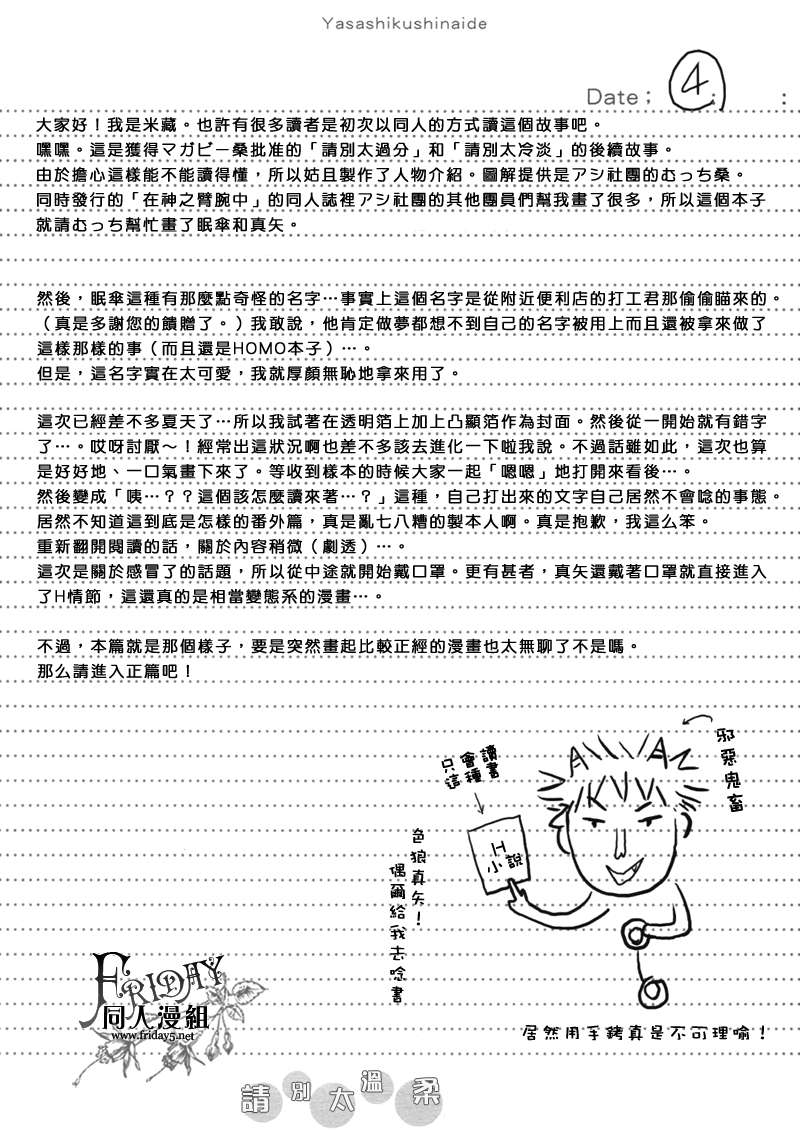 Yasashikushinaide
Date； 4 ： ：
大家好！我是米藏。也許有很多讀者是初次以同人的方式讀這個故事吧。
嘿嘿。這是獲得マガビー桑批准的「請別太過分」和「請別太冷淡」的後續故事。
由於擔心這樣能不能讀得懂，所以姑且製作了人物介紹。圖解提供是アシ社團的むっち桑。
同時發行的「在神之臂腕中」的同人誌裡アシ社團的其他團員們幫我畫了很多，所以這個本子
就請むっち幫忙畫了眠傘和真矢。
然後，眠傘這種有那麼點奇怪的名字…事實上這個名字是從附近便利店的打工君那偷偷瞄來的。
（真是多謝您的饋贈了。）我敢說，他肯定做夢都想不到自己的名字被用上而且還被拿來做了
這樣那樣的事（而且還是HOMO本子）…。
但是，這名字實在太可愛，我就厚顏無恥地拿來用了。
這次已經差不多夏天了…所以我試著在透明箔上加上凸顯箔作為封面。然後從一開始就有錯字
了…。哎呀討厭～！經常出這狀況啊也差不多該去進化一下啦我說。不過話雖如此，這次也算
是好好地、一口氣畫下來了。等收到樣本的時候大家一起「嗯嗯」地打開來看後…。
然後變成「咦…？？這個該怎麼讀來著…？」這種，自己打出來的文字自己居然不會唸的事態。
居然不知道這到底是怎樣的番外篇，真是亂七八糟的製本人啊。真是抱歉，我這么笨。
重新翻開閱讀的話，關於內容稍微（劇透）…。
這次是關於感冒了的話題，所以從中途就開始戴口罩。更有甚者，真矢還戴著口罩就直接進入
了H情節，這還真的是相當變態系的漫畫…。
不過，本篇就是那個樣子，要是突然畫起比較正經的漫畫也太無聊了不是嗎。
那么請進入正篇吧！
邪惡鬼畜
只會讀
這種書
H
小說
色狼真矢！
偶爾給我去唸書
居然用手銬真是不可理喻！
FRIDAY
同人漫組
www.friday5.net
請別太溫柔